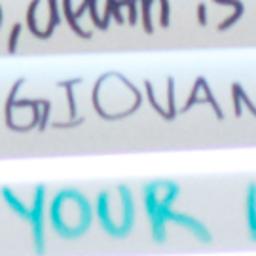 , death is
GIOVAN
YOUR